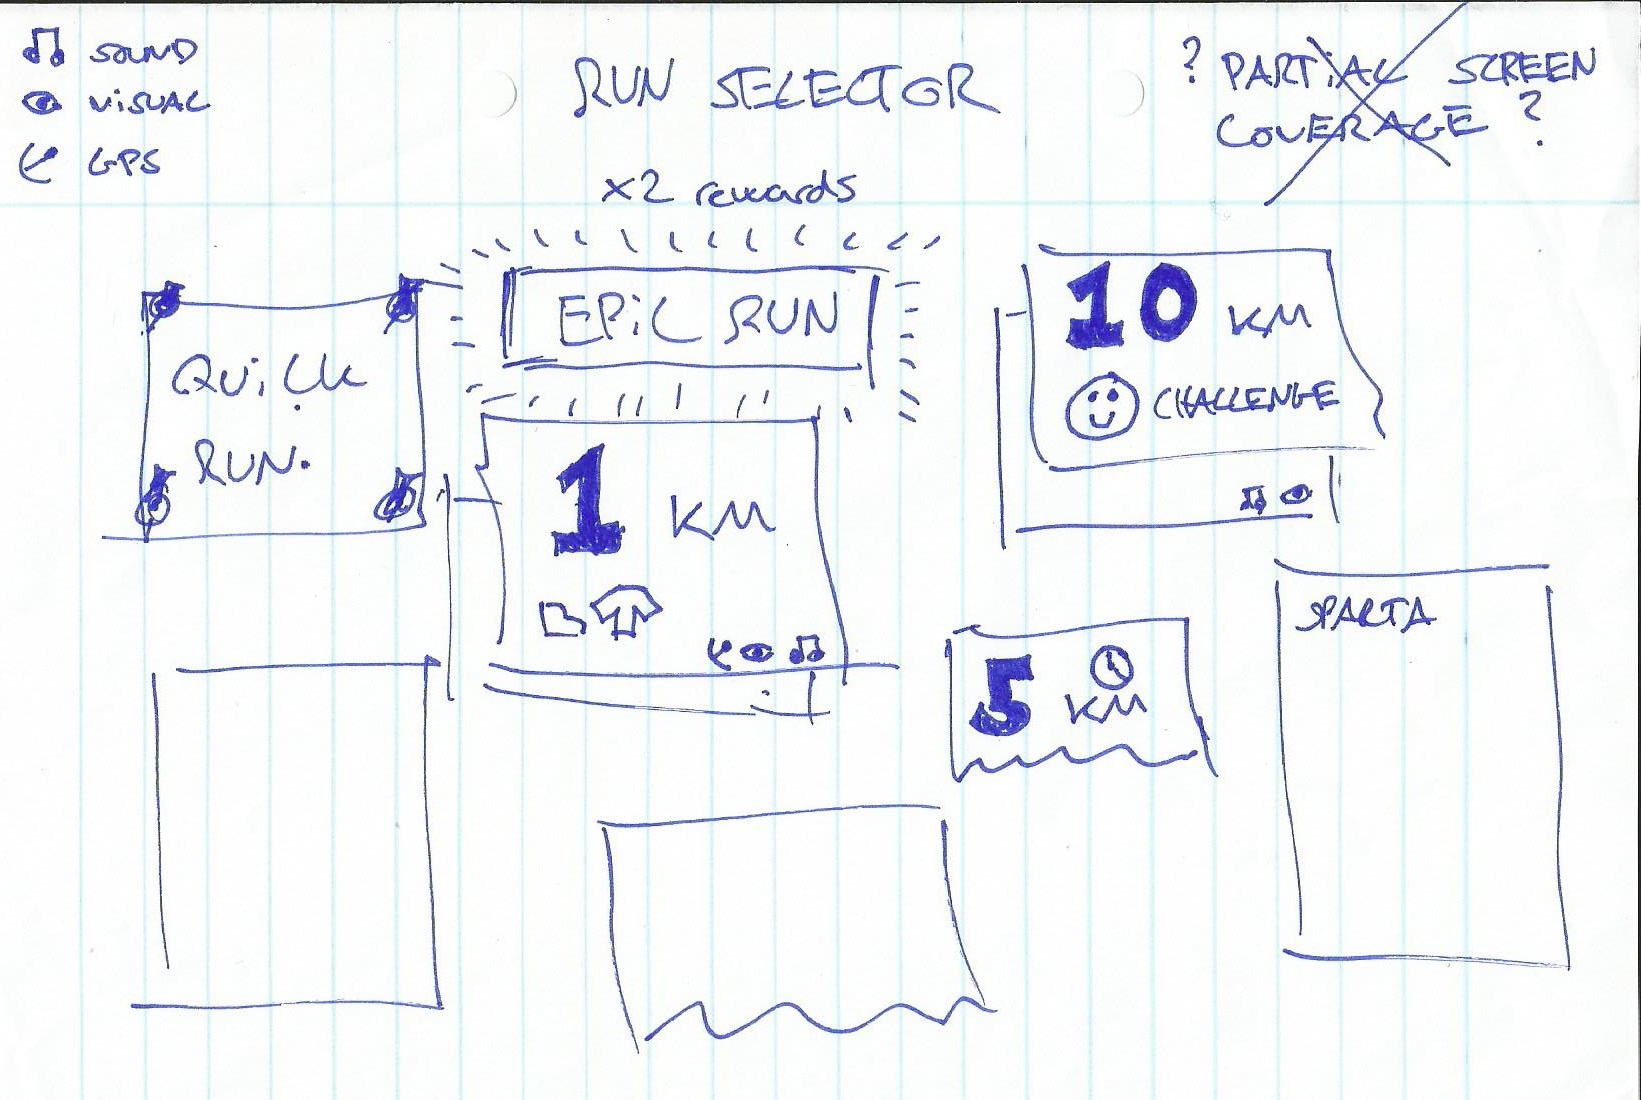 SOUND
VISUAL
GPS
RUN SELECTOR
? PARTIAL SCREEN
COVERAGE ?
x2 rewards
EPIC RUN
QUICK
RUN.
10 KM
CHALLENGE
1 KM
5 KM
SPARTA